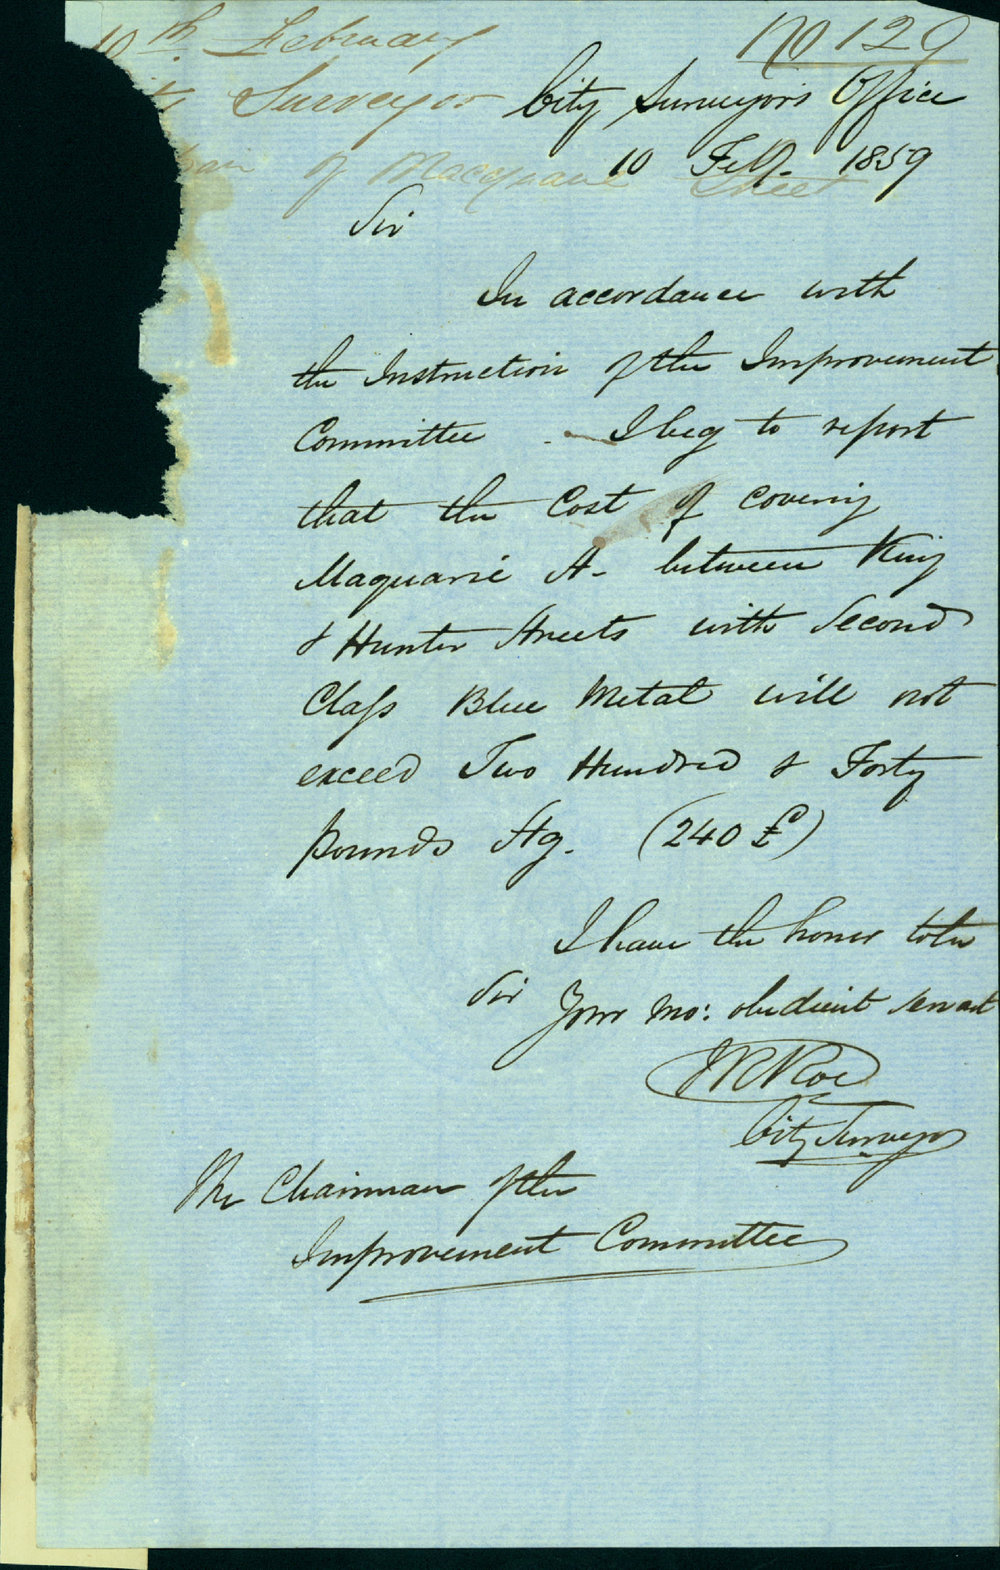 10th February
No 129
Surveyor
City Surveyor's Office
of Macquarie Street
10 Feby. 1859
Sir
In accordance with
the Instruction of the Improvement
Committee I beg to report
that the Cost of covering
Maquarie St. between King
& Hunter Streets with Second
Class Blue Metal will not
exceed Two Hundred & Forty
pounds Stg. (240 £)
I have the honor to be
Sir Your mo: obedient servant
City Surveyor
The Chairman of the
Improvement Committee